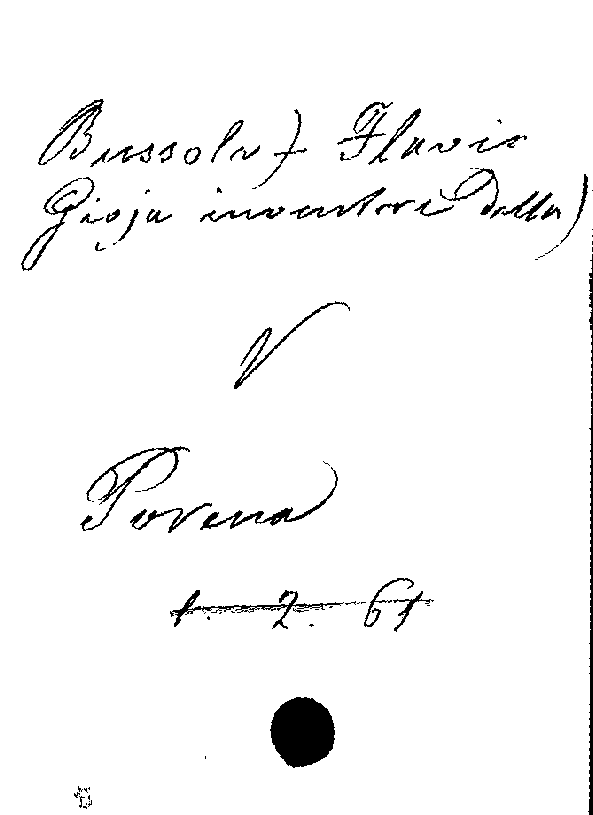 Bussola) Flavio
Gioja inventore della)
V
Porena
1. 2. 61